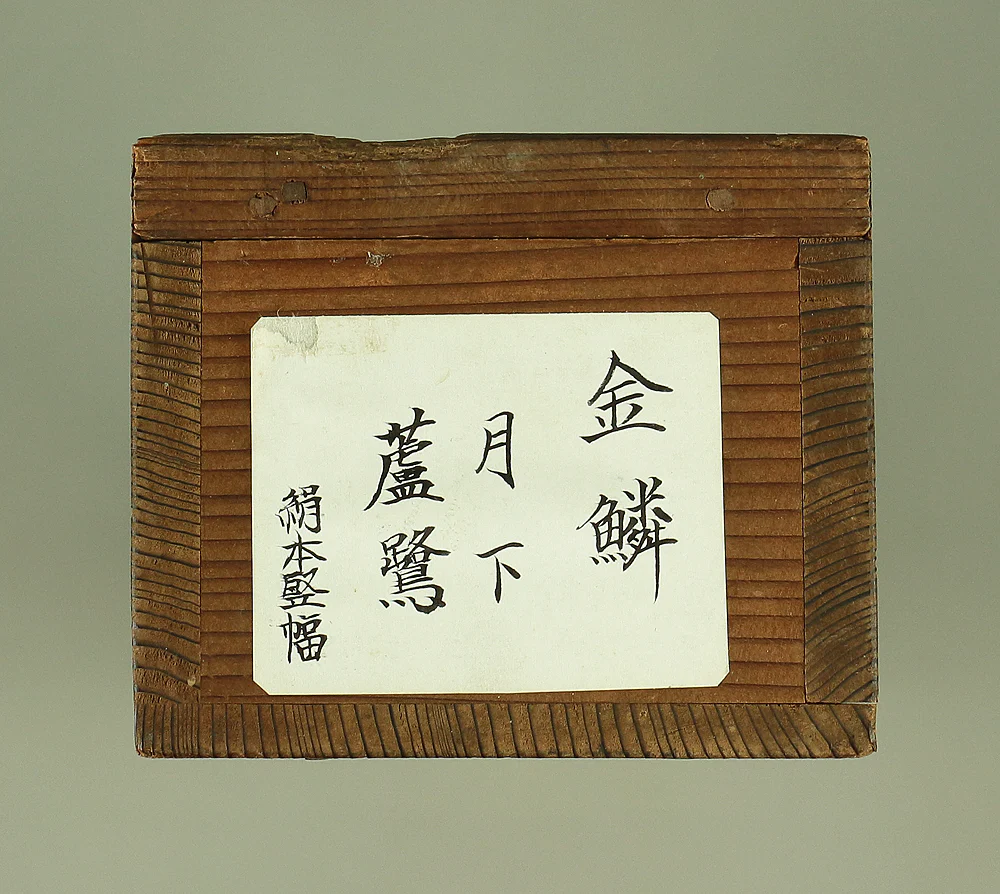 金鱗
月下
蘆鷺
絹本竪幅